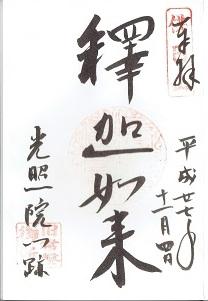 奉拝
平成廿七年
十一月四日
釋迦如来
光照院門跡